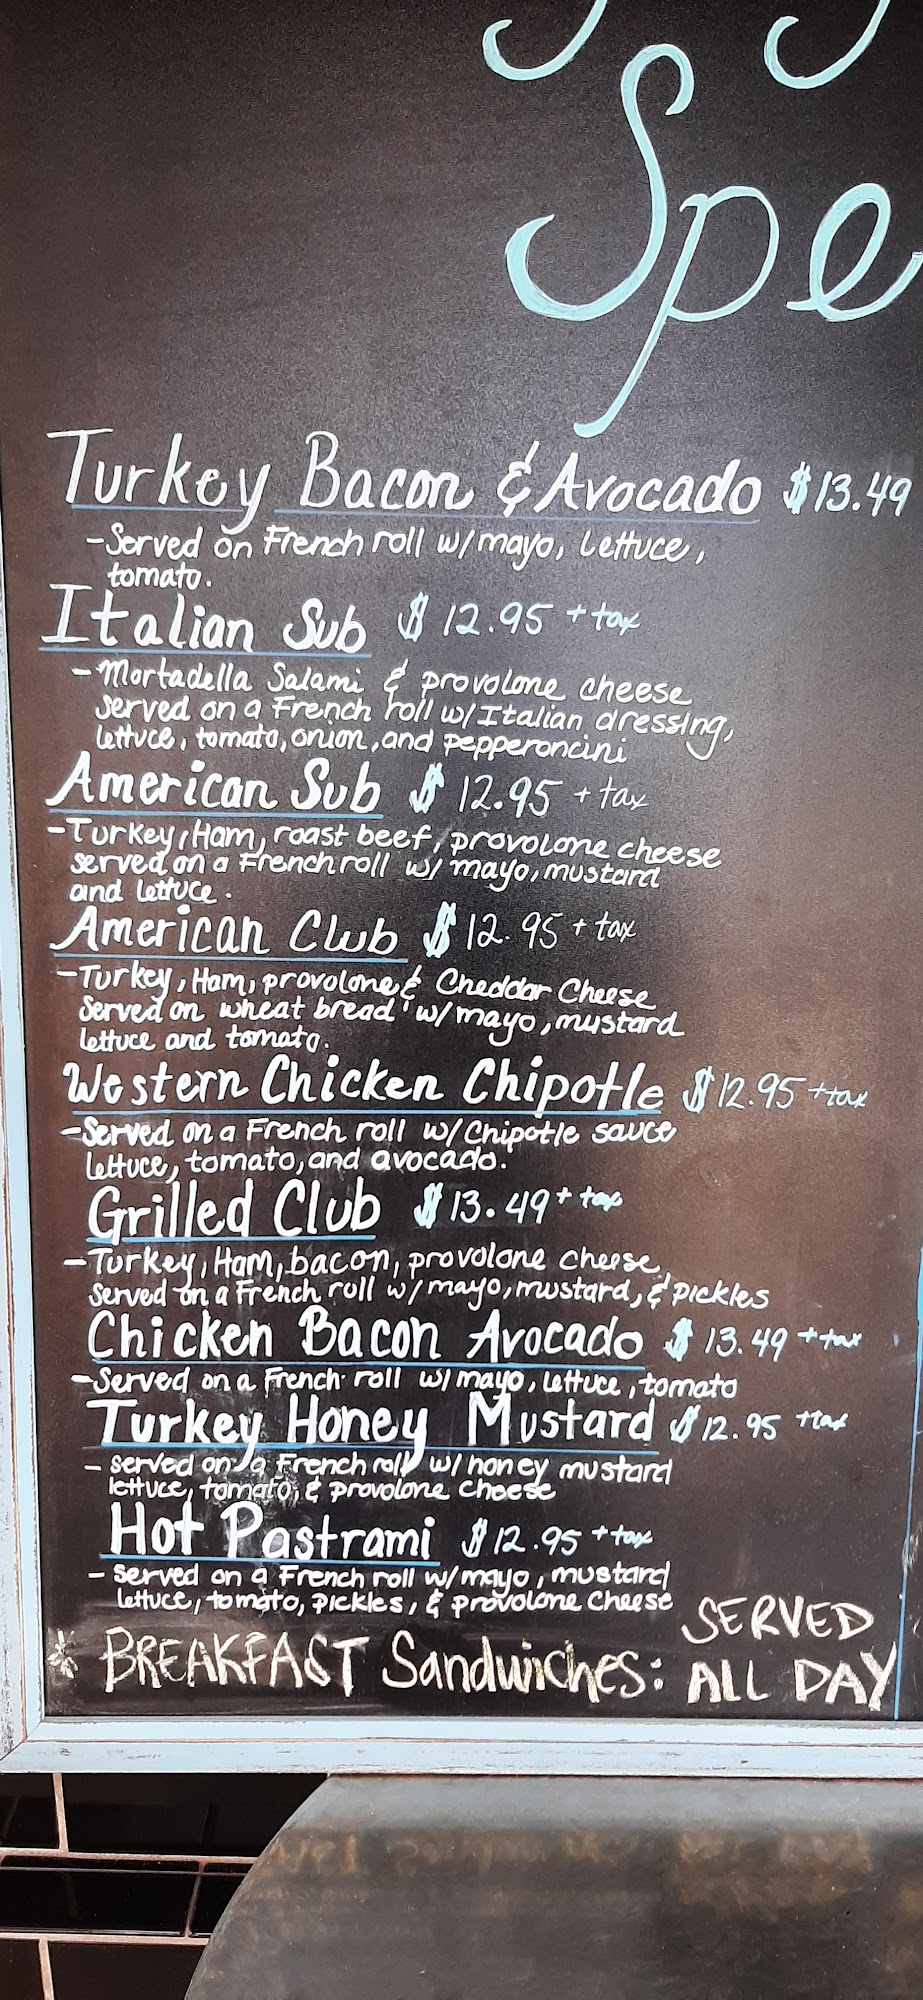 Spe
Turkey Bacon & Avocado $13.49
-Served on French roll w/mayo, lettuce,
tomato.
Italian Sub $12.95 + tax
-Mortadella Salami & provolone cheese
served on a French roll w/Italian dressing,
lettuce, tomato, onion, and pepperoncini
American Sub $12.95 + tax
-Turkey, Ham, roast beef, provolone cheese
served on a French roll w/ mayo, mustard
and lettuce.
American Club $12.95 + tax
-Turkey, Ham, provolone & Cheddar Cheese
Served on wheat bread w/mayo, mustard
lettuce and tomato.
Western Chicken Chipotle $12.95 +tax
-Served on a French roll w/Chipotle sauce
lettuce, tomato, and avocado.
Grilled Club $13.49 + tax
-Turkey, Ham, bacon, provolone cheese,
Served on a French roll w/mayo, mustard, & pickles
Chicken Bacon Avocado $13.49 + tax
-Served on a French roll w/ mayo, lettuce, tomato
Turkey Honey Mustard $12.95 +tax
- served on a French roll w/ honey mustard
lettuce, tomato, & provolone cheese
Hot Pastrami $12.95 + tax
- served on a French roll w/mayo, mustard
lettuce, tomato, pickles, & provolone cheese
* BREAKFAST Sandwiches: SERVED
ALL DAY